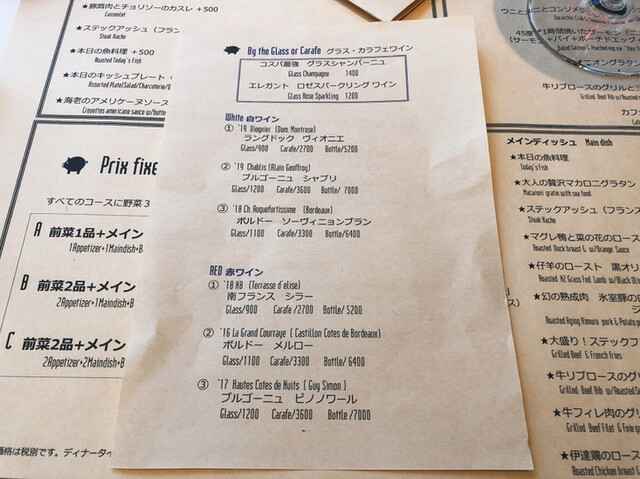 ★豚肩肉とチョリソーのカスレ +500
Cassoulet
★ステックアッシュ(フラン
Steak Hache
★本日の魚料理 +500
Roasted Today's Fish
★本日のキッシュプレート (
Assorted Plate(Salad/Charcuterie/Q
★海老のアメリケーヌソース
Crevettes americaine sauce w/butte
Prix fixe
すべてのコースに野菜3
A 前菜1品+メイン
1Appetizer+1Maindish+B
B 前菜2品+メイン
2Appetizer+1Maindish+B
C 前菜2品+メイン
2Appetizer+2Maindish+B
価格は税別です。ディナータイ
By the Glass or Carafe グラス・カラフェワイン
コスパ最強 グラスシャンパーニュ
Glass Champagne 1400
エレガント ロゼスパークリングワイン
Glass Rose Sparkling 1200
White 白ワイン
① '19 Viognier (Dom Montrose)
ラングドック ヴィオニエ
Glass/900 Carafe/2700 Bottle/5200
② '19 Chablis (Alain Geoffroy)
ブルゴーニュ シャブリ
Glass/1200 Carafe/3600 Bottle/ 7000
③ '18 Ch.Roquefortissime (Bordeaux)
ボルドー ソーヴィニョンブラン
Glass/1100 Carafe/3300 Bottle/6400
RED 赤ワイン
① '18 KB (Terrasse d'elise)
南フランス シラー
Glass/900 Carafe /2700 Bottle/ 5200
② '16 La Grand Courraye ( Castillon Cotes de Bordeaux)
ボルドー メルロー
Glass/1100 Carafe/3300 Bottle/ 6400
③ '17 Hautes Cotes de Nuits ( Guy Simon )
ブルゴーニュ ピノノワール
Glass/1200 Carafe/3600 Bottle /7000
ウニとンニとコンソメ
牛リブロースのグリルと三
Grilled Beef Rib w/Roasted
カフ
メインディッシュ Main dish
★本日の魚料理
Today's Fish
★大人の贅沢マカロニグラタン
Macaroni gratin with sea food
★ステックアッシュ (フランス
Steak Hache
★マグレ鴨と菜の花のロース
Roasted Duck breast & w/Orange Sauce
★仔羊のロースト 黒オリ
Roasted NZ Grass Fed Lamb w/Black Oliv
★幻の熟成肉 氷室豚の
Roasted Aging Himuro pork & Potato p
★大盛り!ステックアッシ
Grilled Beef & French fries
★牛リブロースのグリ
Grilled Beef Rib w/Roasted S
★牛フィレ肉のグリ
Grilled Beef Filet & Foie gr
★伊達鶏のロース
Roasted Chicken